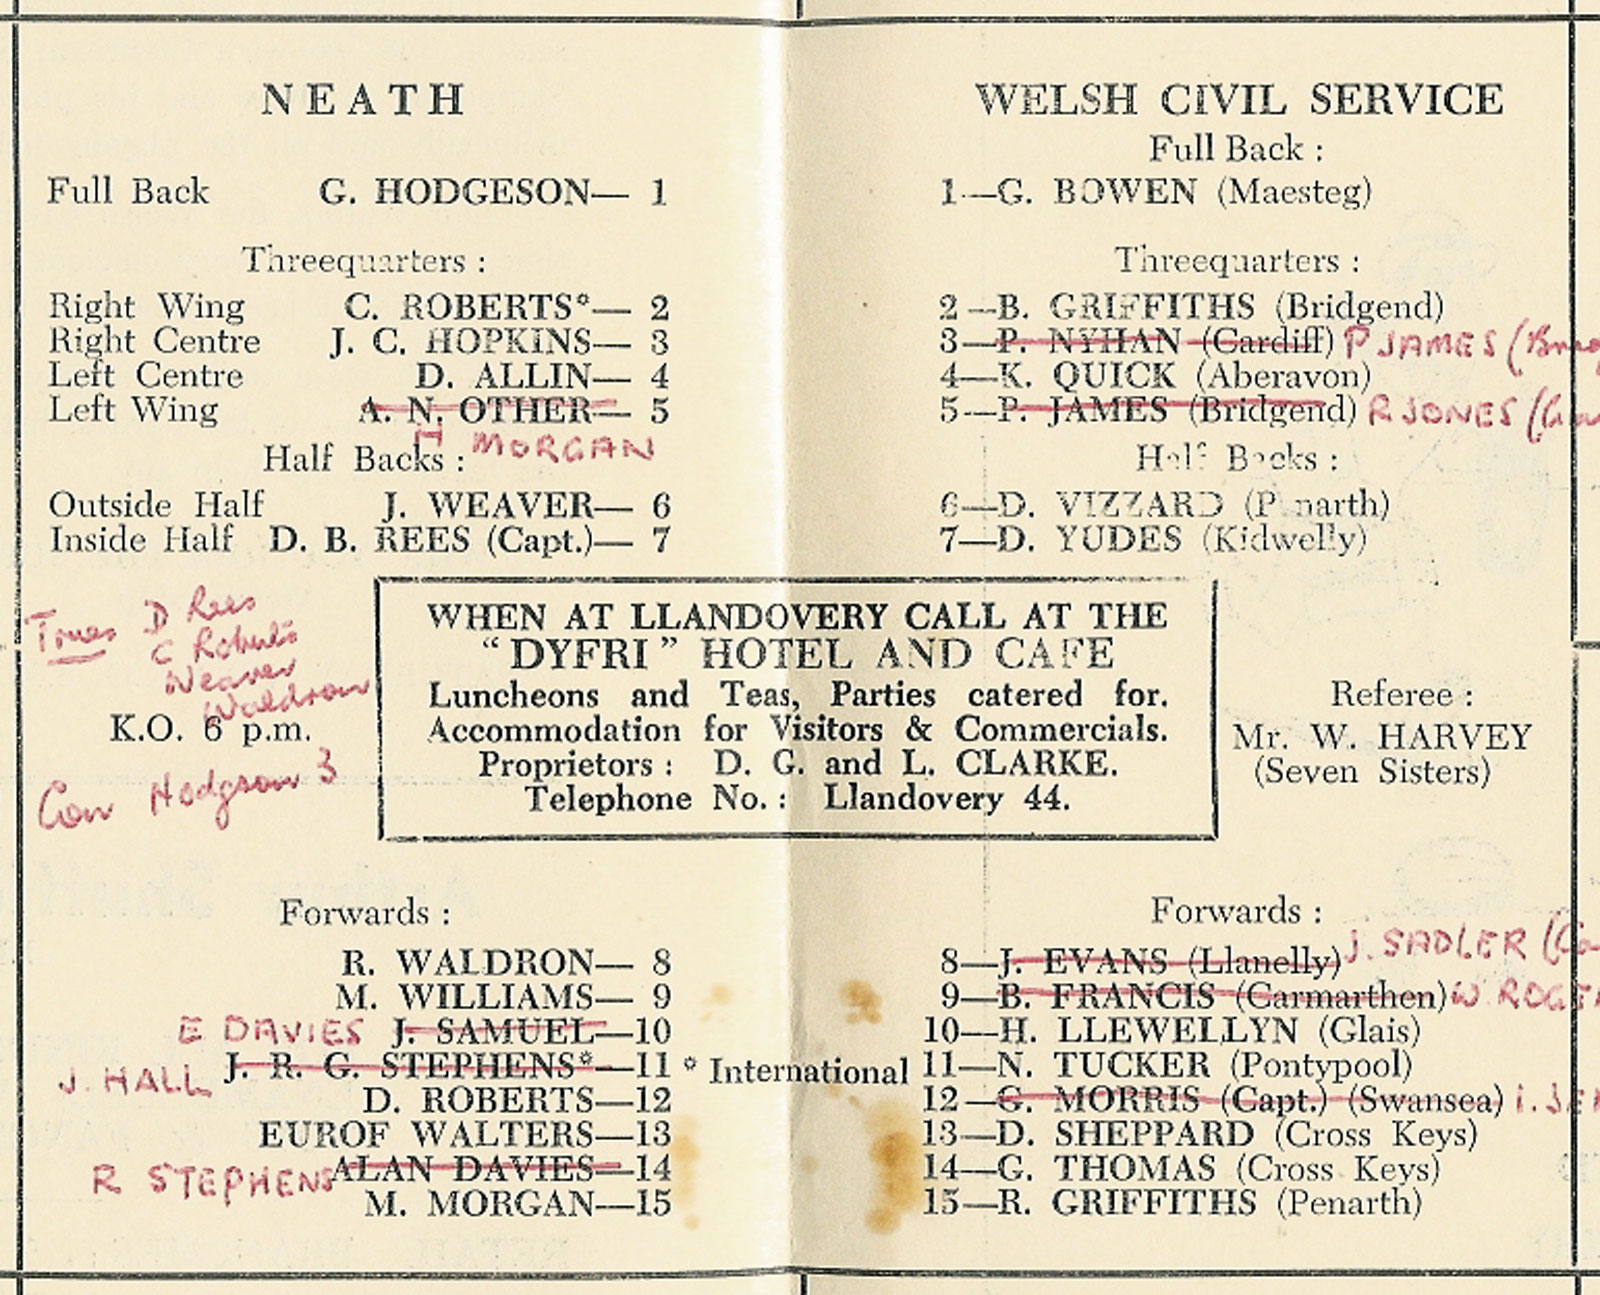 NEATH
Full Back G. HODGESON— 1
Threequarters :
Right Wing C. ROBERTS*— 2
Right Centre J. C. HOPKINS— 3
Left Centre D. ALLIN— 4
Left Wing A. N. OTHER— 5
H MORGAN
Half Backs :
Outside Half J. WEAVER— 6
Inside Half D. B. REES (Capt.)— 7
D Rees
C Roberts
Weaver
Waldron
K.O. 6 p.m.
Con Hodgson 3
WHEN AT LLANDOVERY CALL AT THE
“DYFRI” HOTEL AND CAFE
Luncheons and Teas, Parties catered for.
Accommodation for Visitors & Commercials.
Proprietors : D. G. and L. CLARKE.
Telephone No. : Llandovery 44.
Forwards :
R. WALDRON— 8
M. WILLIAMS— 9
E DAVIES J. SAMUEL—10
J. HALL J. R. G. STEPHENS*—11
D. ROBERTS—12
EUROF WALTERS—13
R STEPHENS ALAN DAVIES—14
M. MORGAN—15
* International
WELSH CIVIL SERVICE
Full Back :
1—G. BOWEN (Maesteg)
Threequarters :
2—B. GRIFFITHS (Bridgend)
3—P. NYHAN (Cardiff) P JAMES
4—K. QUICK (Aberavon)
5—P. JAMES (Bridgend) R JONES
Half Backs :
6—D. VIZZARD (Penarth)
7—D. YUDES (Kidwelly)
Referee :
Mr. W. HARVEY
(Seven Sisters)
Forwards :
8—J. EVANS (Llanelly) J. SADLER
9—B. FRANCIS (Carmarthen) W
10—H. LLEWELLYN (Glais)
11—N. TUCKER (Pontypool)
12—G. MORRIS (Capt.) (Swansea)
13—D. SHEPPARD (Cross Keys)
14—G. THOMAS (Cross Keys)
15—R. GRIFFITHS (Penarth)